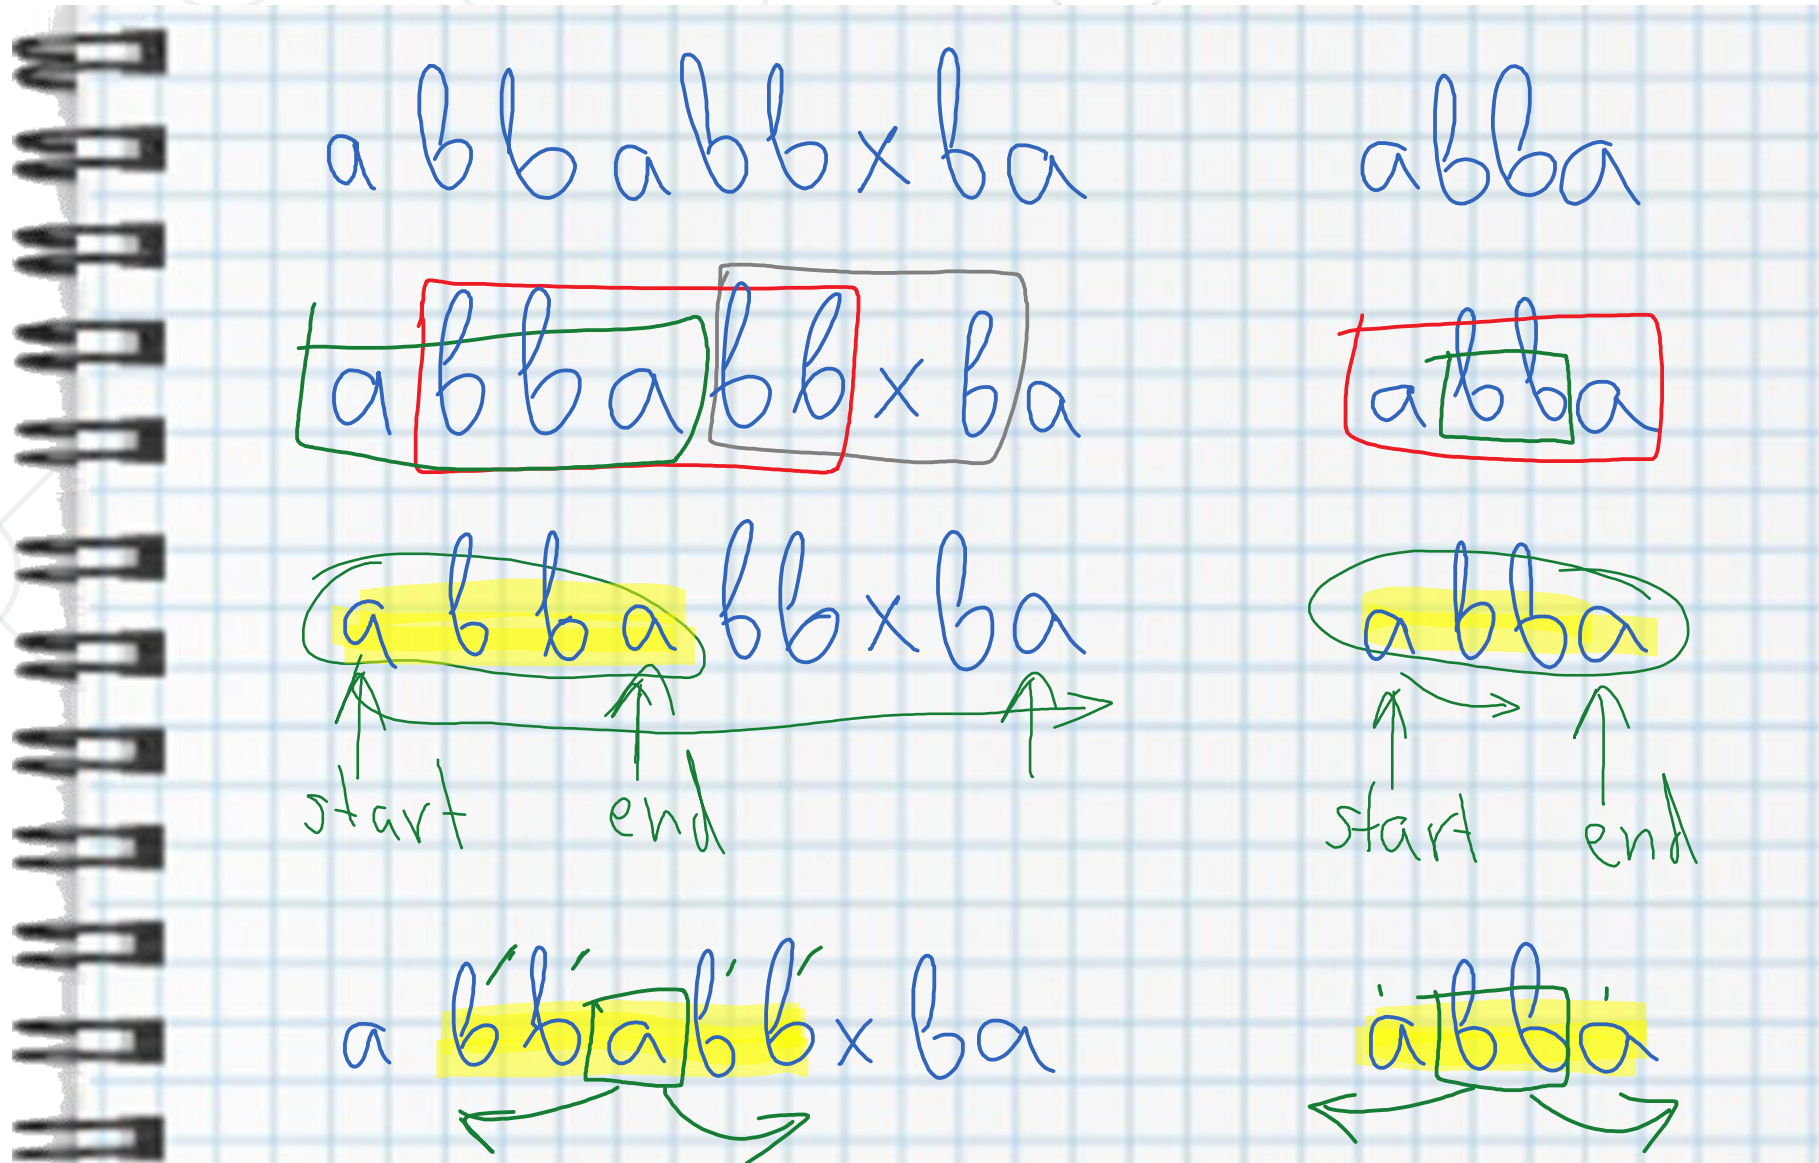 abbabbxba abba
abbabbxba abba
abbabbxba abba
start end start end
abbabbxba abba